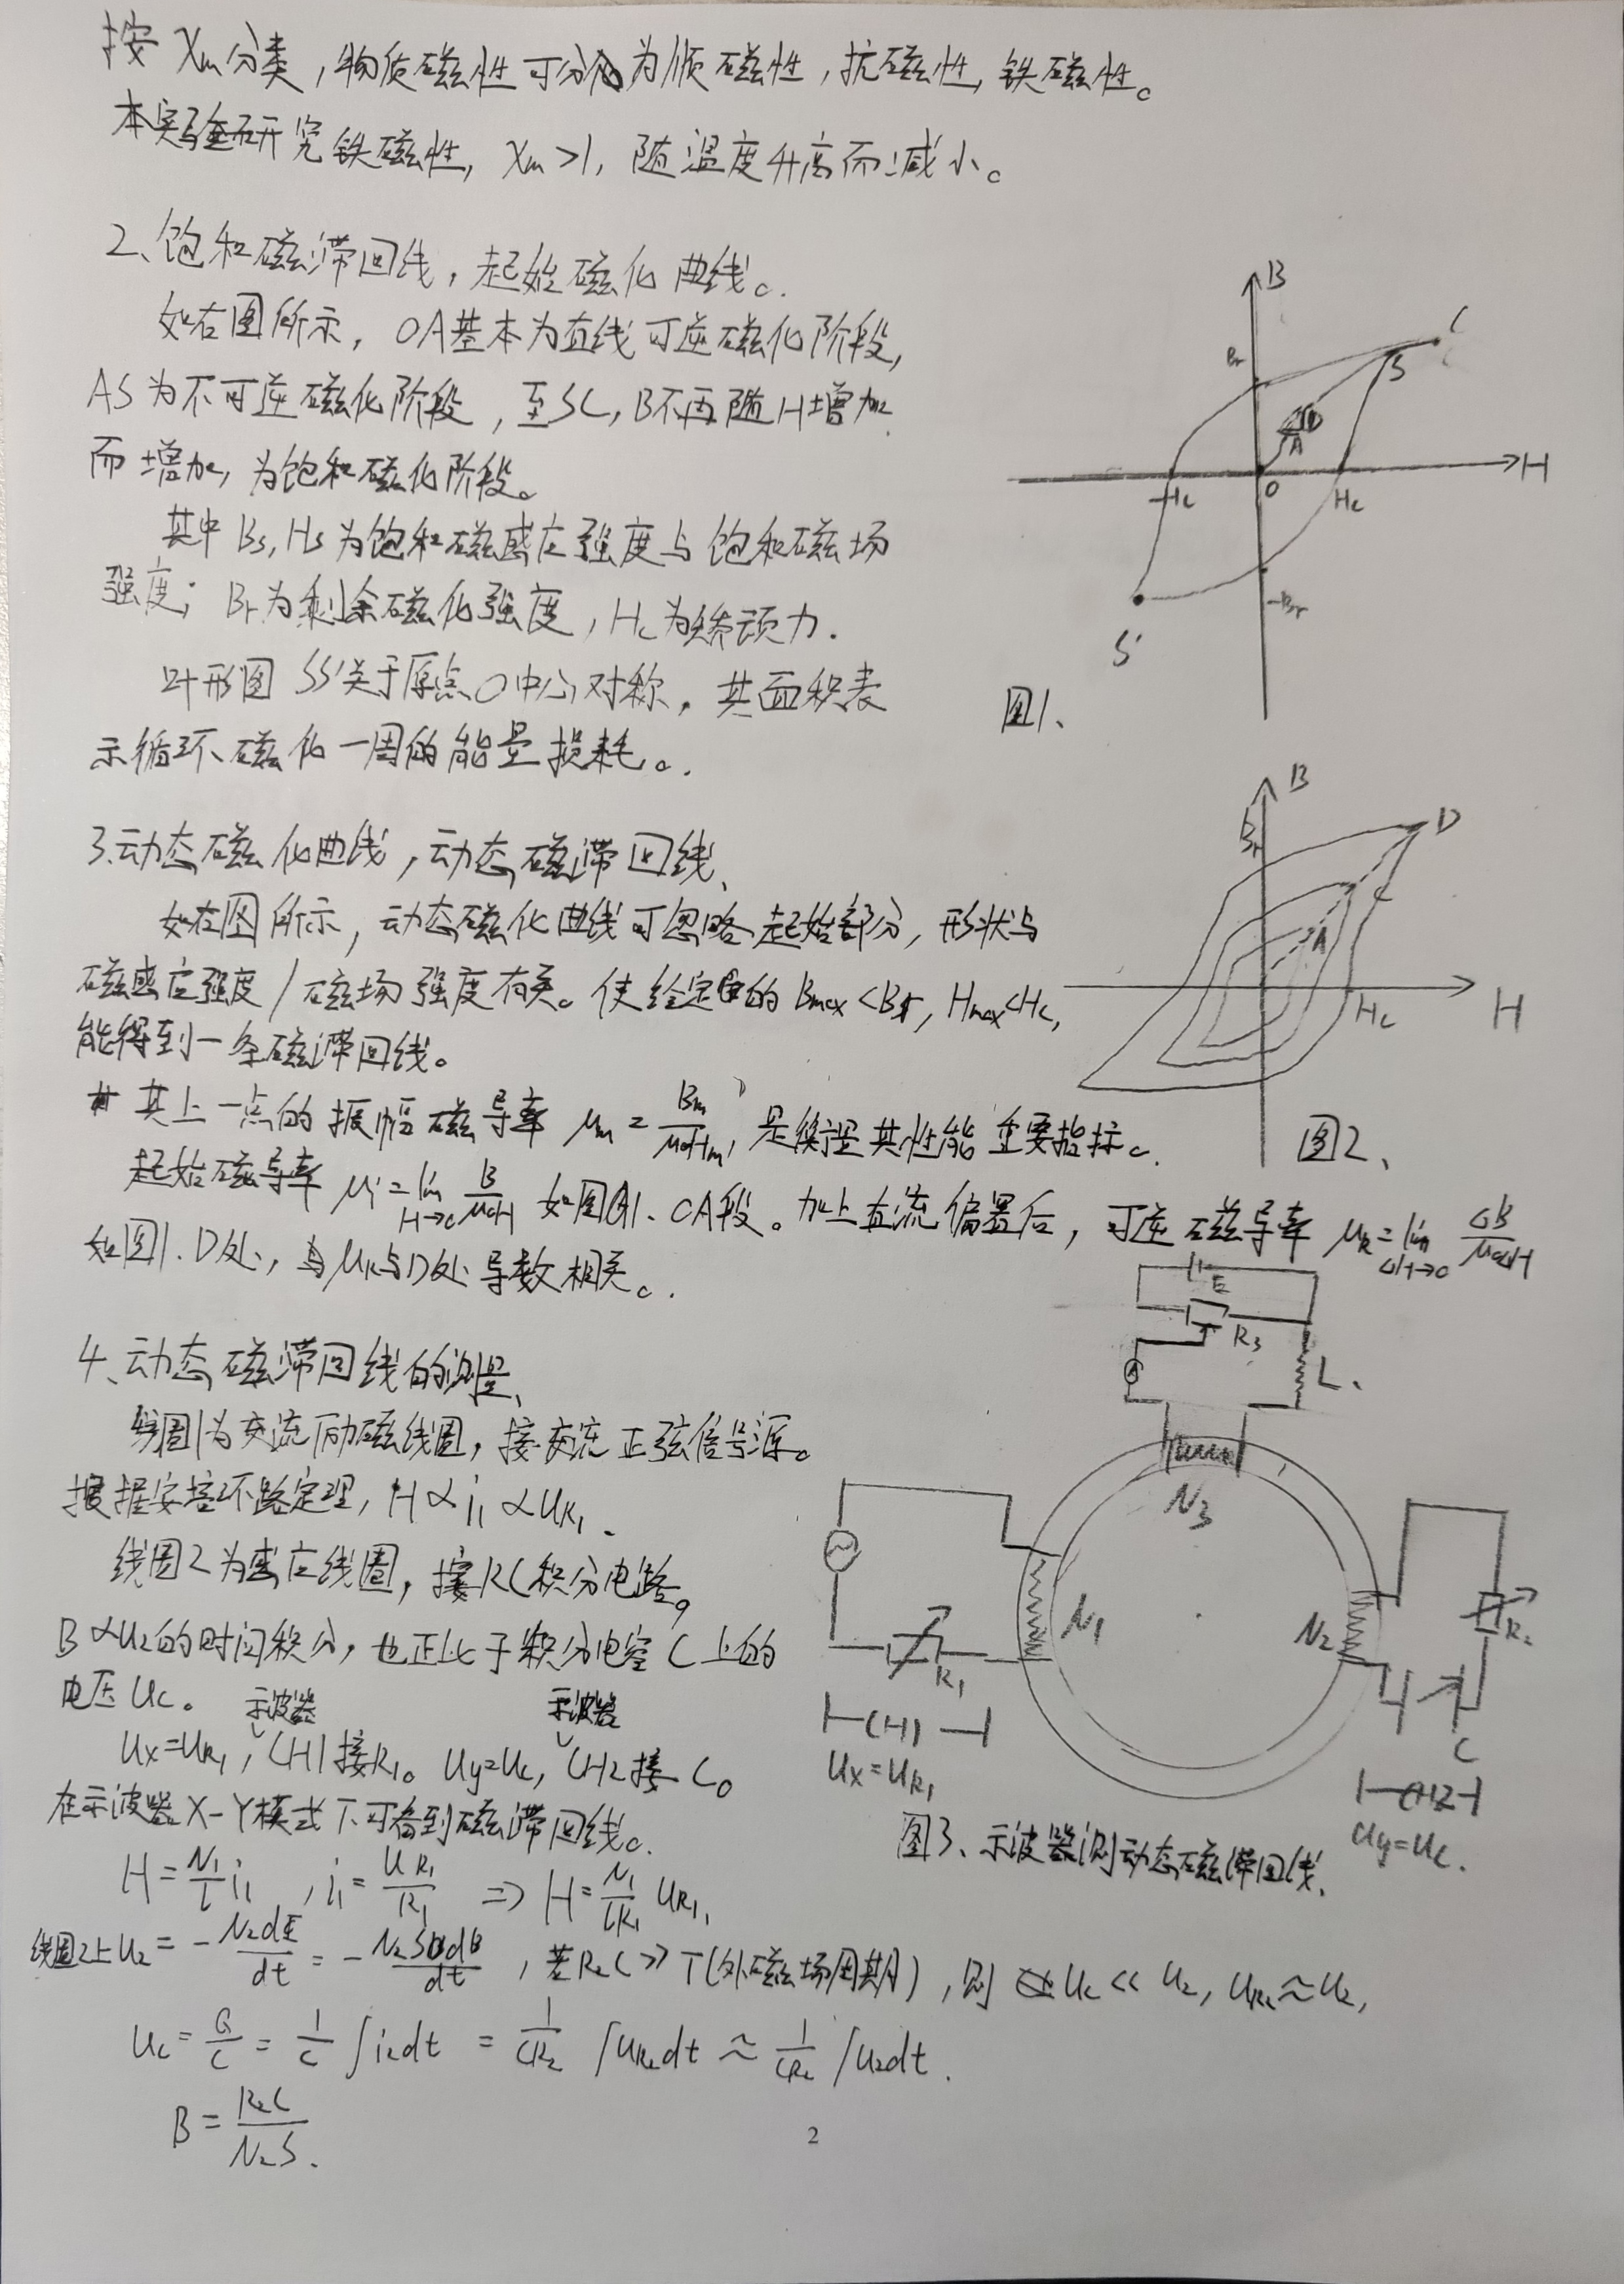 按 χm分类,物质磁性可分为顺磁性,抗磁性,铁磁性。
本实验研究铁磁性, χm>1, 随温度升高而减小。
2、饱和磁滞回线,起始磁化曲线。
如右图所示, OA基本为直线可逆磁化阶段,
AS为不可逆磁化阶段,至SC,B不再随H增加
而增加,为饱和磁化阶段。
其中Bs,Hs为饱和磁感应强度与饱和磁场
强度; Br为剩余磁化强度,Hc为矫顽力.
叶形图 SS'关于原点O中心对称,其面积表
示循环磁化一周的能量损耗。
B
C
S
Br
A
H
-Hc
O
Hc
-Br
S'
图1、
3.动态磁化曲线,动态磁滞回线、
如右图所示,动态磁化曲线可忽略起始部分,形状与
磁感应强度/磁场强度有关。使给定的Bmax<Br, Hmax<Hc,
能得到一条磁滞回线。
其上一点的振幅磁导率 μm = Bm/μ0Hm, 是衡量其性能重要指标。
起始磁导率 μi=lim H→0 B/μ0H 如图1、OA段。加上直流偏置后,可逆磁导率 μR=lim ΔH→0 ΔB/μ0ΔH
如图1.D处,与μR与D处导数相关。
B
D
Br
C
A
Hc
H
图2、
4、动态磁滞回线的测量、
线圈1为交流励磁线圈,接交流正弦信号源。
根据安培环路定理, H∝i1∝UR1.
线圈2为感应线圈,接RC积分电路。
B∝U2的时间积分,也正比于积分电容C上的
电压Uc。
示波器 示波器
Ux=UR1, CH1接R1。 Uy=Uc, CH2接C。
在示波器X-Y模式下可看到磁滞回线。
E
R3
A
L、
N3
N1
N2
R1
R2
C
CH1
Ux=UR1
CH2
Uy=Uc.
图3、示波器测动态磁滞回线、
H=N1/l i1 , i1=UR1/R1 => H=N1/lR1 UR1,
线圈2上U2 = -N2dΦ/dt = -N2SdB/dt , 若R2C>>T(外磁场周期), 则 Uc<<U2, UR2≈U2,
Uc=Q/C = 1/C ∫i2dt = 1/CR2 ∫UR2dt ≈ 1/CR2 ∫U2dt.
B=R2C/N2S.
2